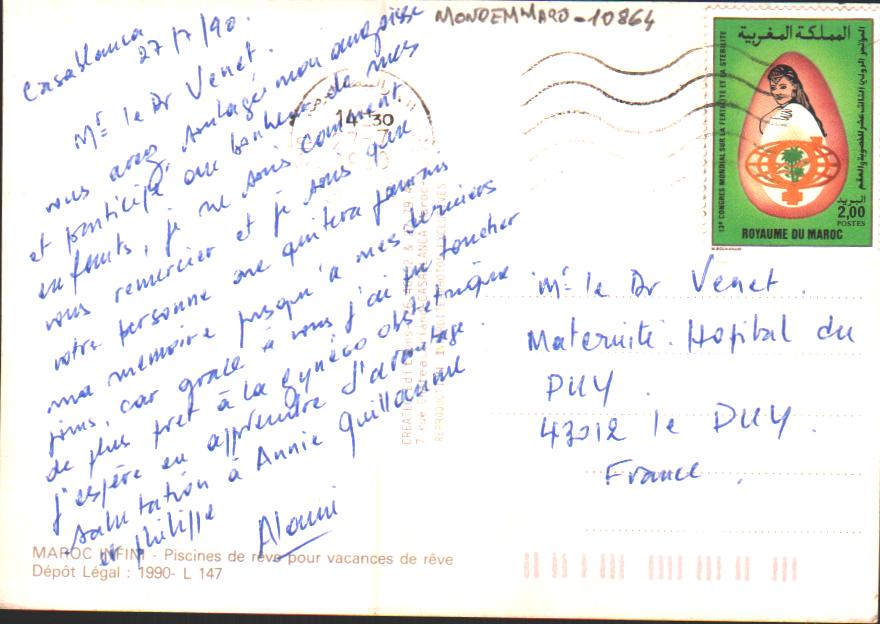 MONDEMMARO-10864
Casablanca
27/7/90.
Mr le Dr Venet.
vous avez soulagé mon angoisse
et participé au bonheur de mes
enfants, je ne sais comment
vous remercier et je sais que
votre personne me quitera jamais
ma mémoire jusqu'a mes derniers
jours, car grace à vous j'ai pu toucher
de plus pret à la gynéco obstetrique
j'espère en apprendre d'avantage.
salutation à Annie Guillaume
et philippe
Alaoui
MAROC INFINI - Piscines de rêve pour vacances de rêve
Dépôt Légal : 1990- L 147
14-30
المملكة المغربية
المؤتمر الدولي الثالث عشر للخصوبة والعقم
13e CONGRES MONDIAL SUR LA FERTILITE ET LA STERILITE
البريد
2,00
POSTES
ROYAUME DU MAROC
Mr le Dr Venet.
Maternité. Hopital du
PUY.
43012 le PUY.
France.